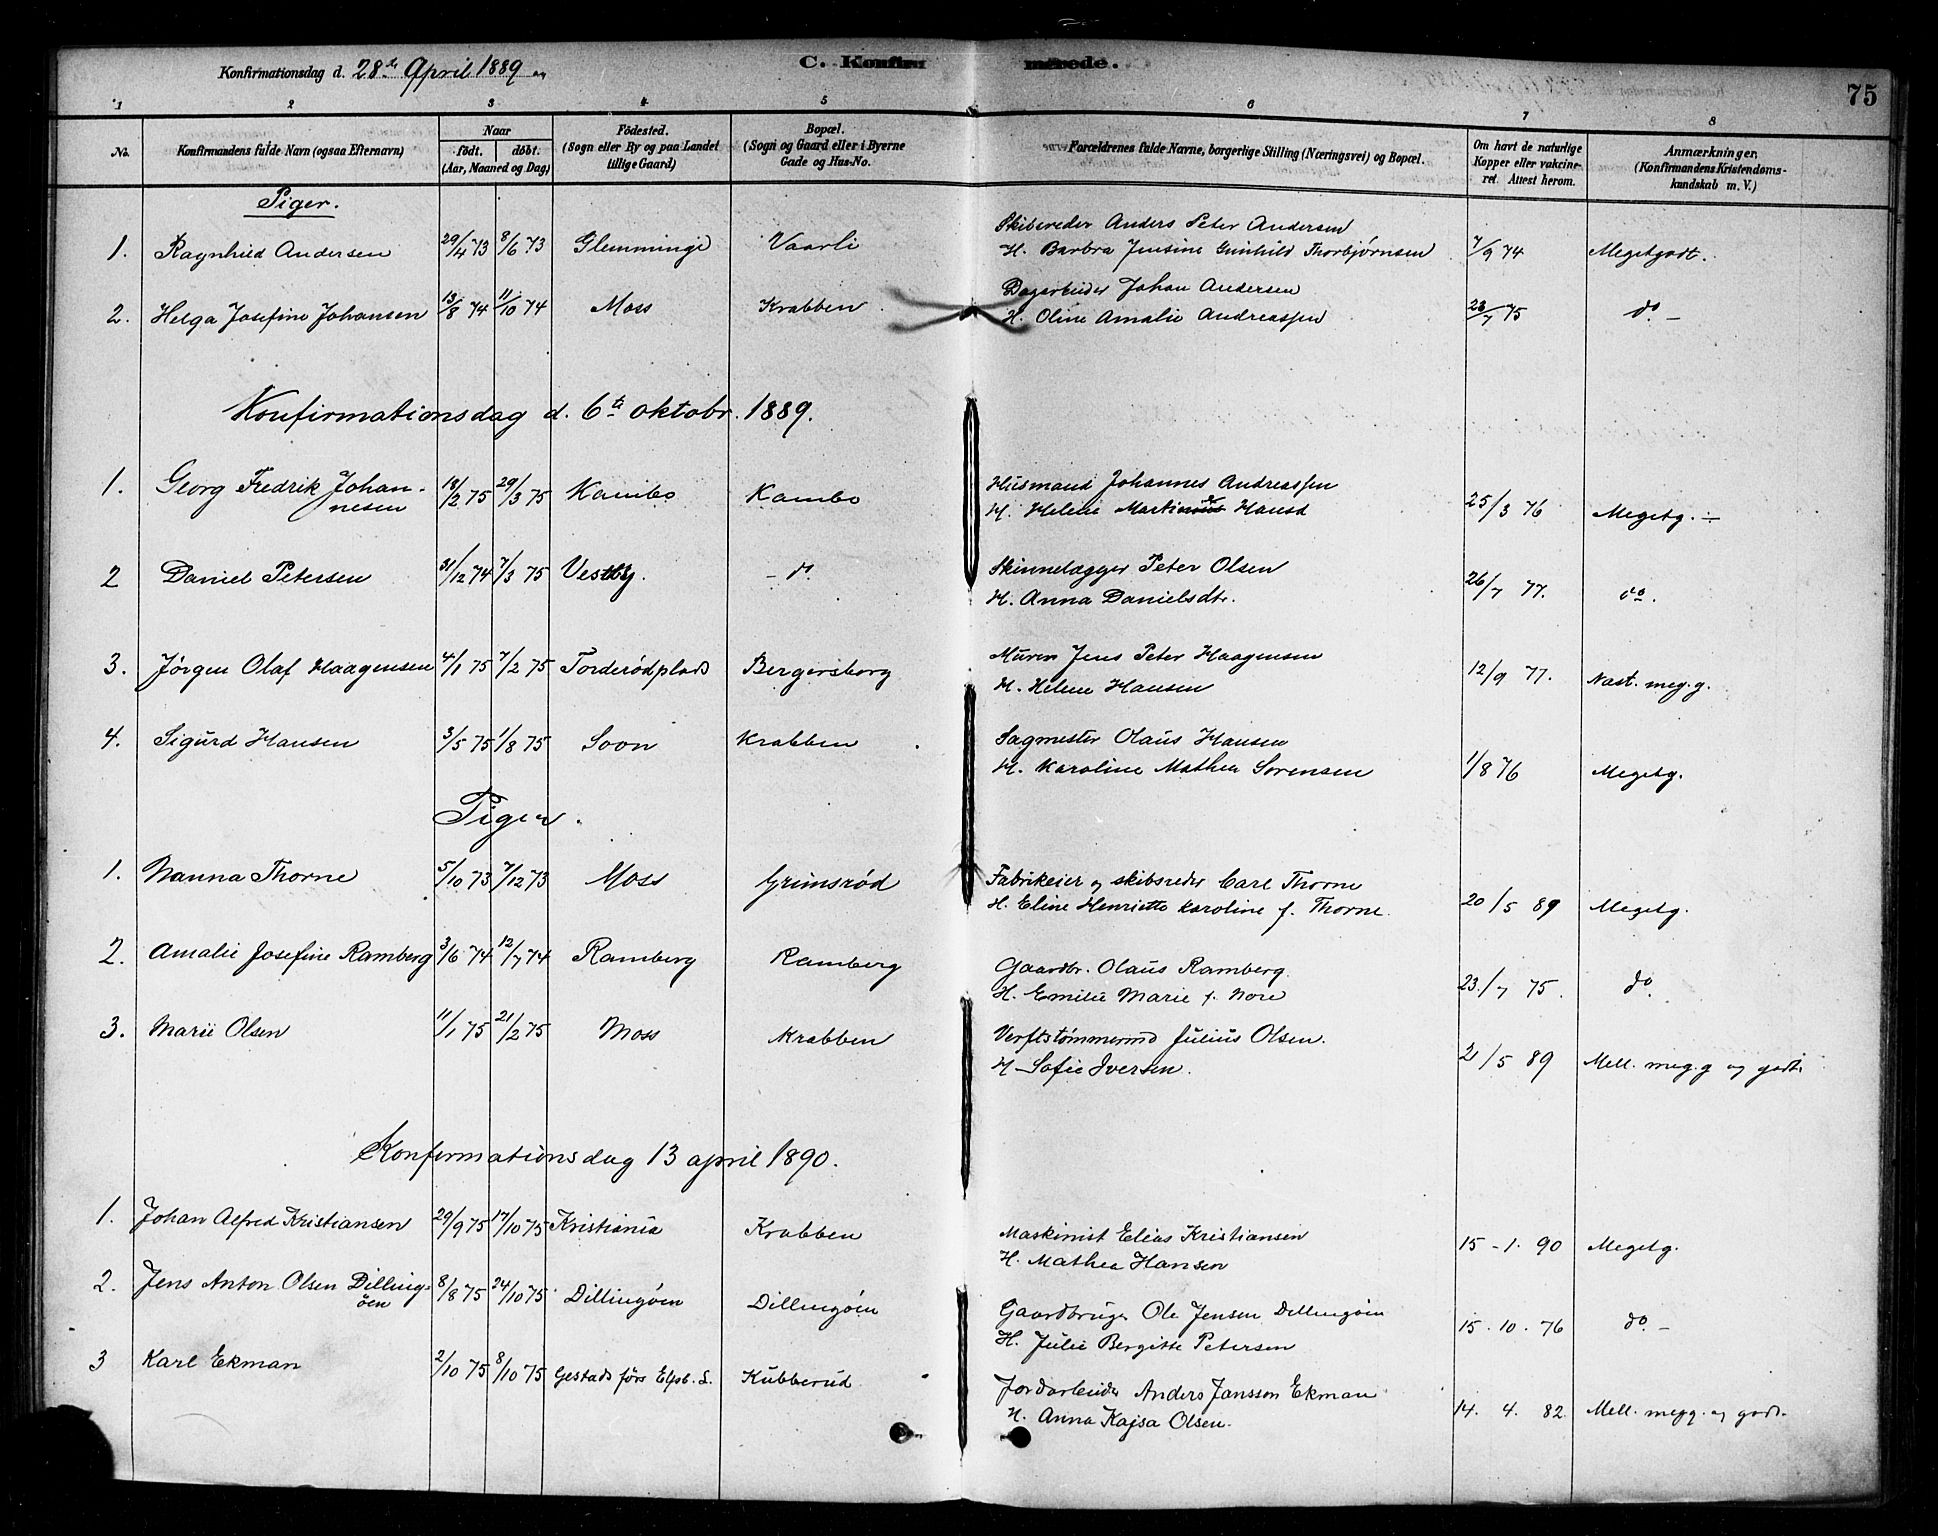 Konfirmationsdag d. 28de April 1889
C. Konfirmerede.
75
1 2 3 4 5 6 7 8
No. Konfirmandens fulde Navn (ogsaa Efternavn) Naar født. døbt. (Aar, Maaned og Dag) Fødested. (Sogn eller By og paa Landet tillige Gaard) Bopæl. (Sogn og Gaard eller i Byerne Gade og Hus-No. Forældrenes fulde Navne, borgerlige Stilling (Næringsvei) og Bopæl. Om havt de naturlige Kopper eller vakcineret. Attest herom. Anmærkninger, (Konfirmandens Kristendomskundskab m. V.)
Piger.
1. Ragnhild Andersen 29/4 73 8/6 73 Glemminge Vaarli Skibsreder Anders Peter Andersen
H. Barbra Jensine Gunhild Thorbjørnsen 7/9 74 Megetgodt.
2. Helga Josefine Johansen 13/8 74 11/10 74 Moss Krabben Dagarbeider Johan Andersen
H. Oline Amalie Andreassen 23/7 75 do –
Konfirmationsdag d. 6te oktobr. 1889.
1. Georg Fredrik Johannesen 18/2 75 29/3 75 Kambo Kambo Husmand Johannes Andreassen
H. Helene Hansd 25/3 76 Megetg. –
2 Daniel Petersen 31/12 74 7/3 75 Vestby. – do. Skinnelægger Peter Olsen
H. Anna Danielsdtr. 26/7 77. do.
3. Jørgen Olaf Haagensen 4/1 75 7/2 75 Torderødplads Bergersborg Murer Jens Peter Haagensen
H. Helene Hansen 12/9 77. Næst. meg. g.
4. Sigurd Hansen 3/5 75 1/8 75 Soon Krabben Sagmester Olaus Hansen
H. Karoline Mathea Sørensen 1/8 76 Megetg.
Piger.
1. Nanna Thorne 5/10 73 7/12 73 Moss Grimsrød Fabrikeier og skibsreder Carl Thorne
H. Eline Henriette Karoline f. Thorne. 20/5 89 Megetg.
2. Amalie Josefine Ramberg 3/6 74 12/7 74 Ramberg Ramberg Gaardbr. Olaus Ramberg.
H. Emilie Marie f. Nore 23./7 75. do.
3. Marie Olsen 11/1 75 21/2 75 Moss Krabben Verftstømmermd Julius Olsen.
H. Sofie Iversen. 21/5 89 Mell. meg. g og godt.
Konfirmationsdag 13 april 1890.
1. Johan Alfred Kristiansen 29/9 75 17/10 75 Kristiania Krabben Maskinist Elias Kristiansen
H. Mathea Hansen 15 – 1. 90 Megetg.
2. Jens Anton Olsen Dillingøen 8/8 75 24/10 75 Dillingøen Dillingøen Gaardbruger Ole Jensen Dillingøen
H. Julie Bergitte Petersen 15. 10. 76 do. –
3 Karl Ekman 2/10 75 8/10 75 Gestads førs Elfsb. L. Kubberud Jordarbeider Anders Jansson Ekman
H. Anna Kajsa Olsen. 14. 4. 82. Mell. meg g. og godt.